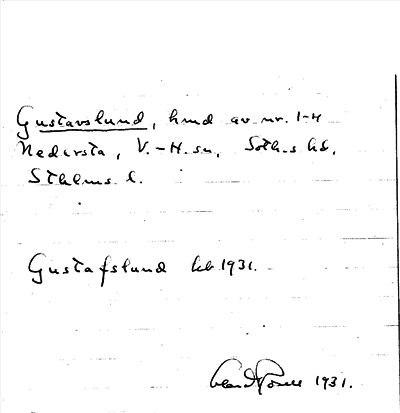 Gustavslund, hmd av nr. 1-4
Nedersta, V.-H. sn, Soth.s hd,
Sthlms l.
Gustafslund kb 1931.
1931.